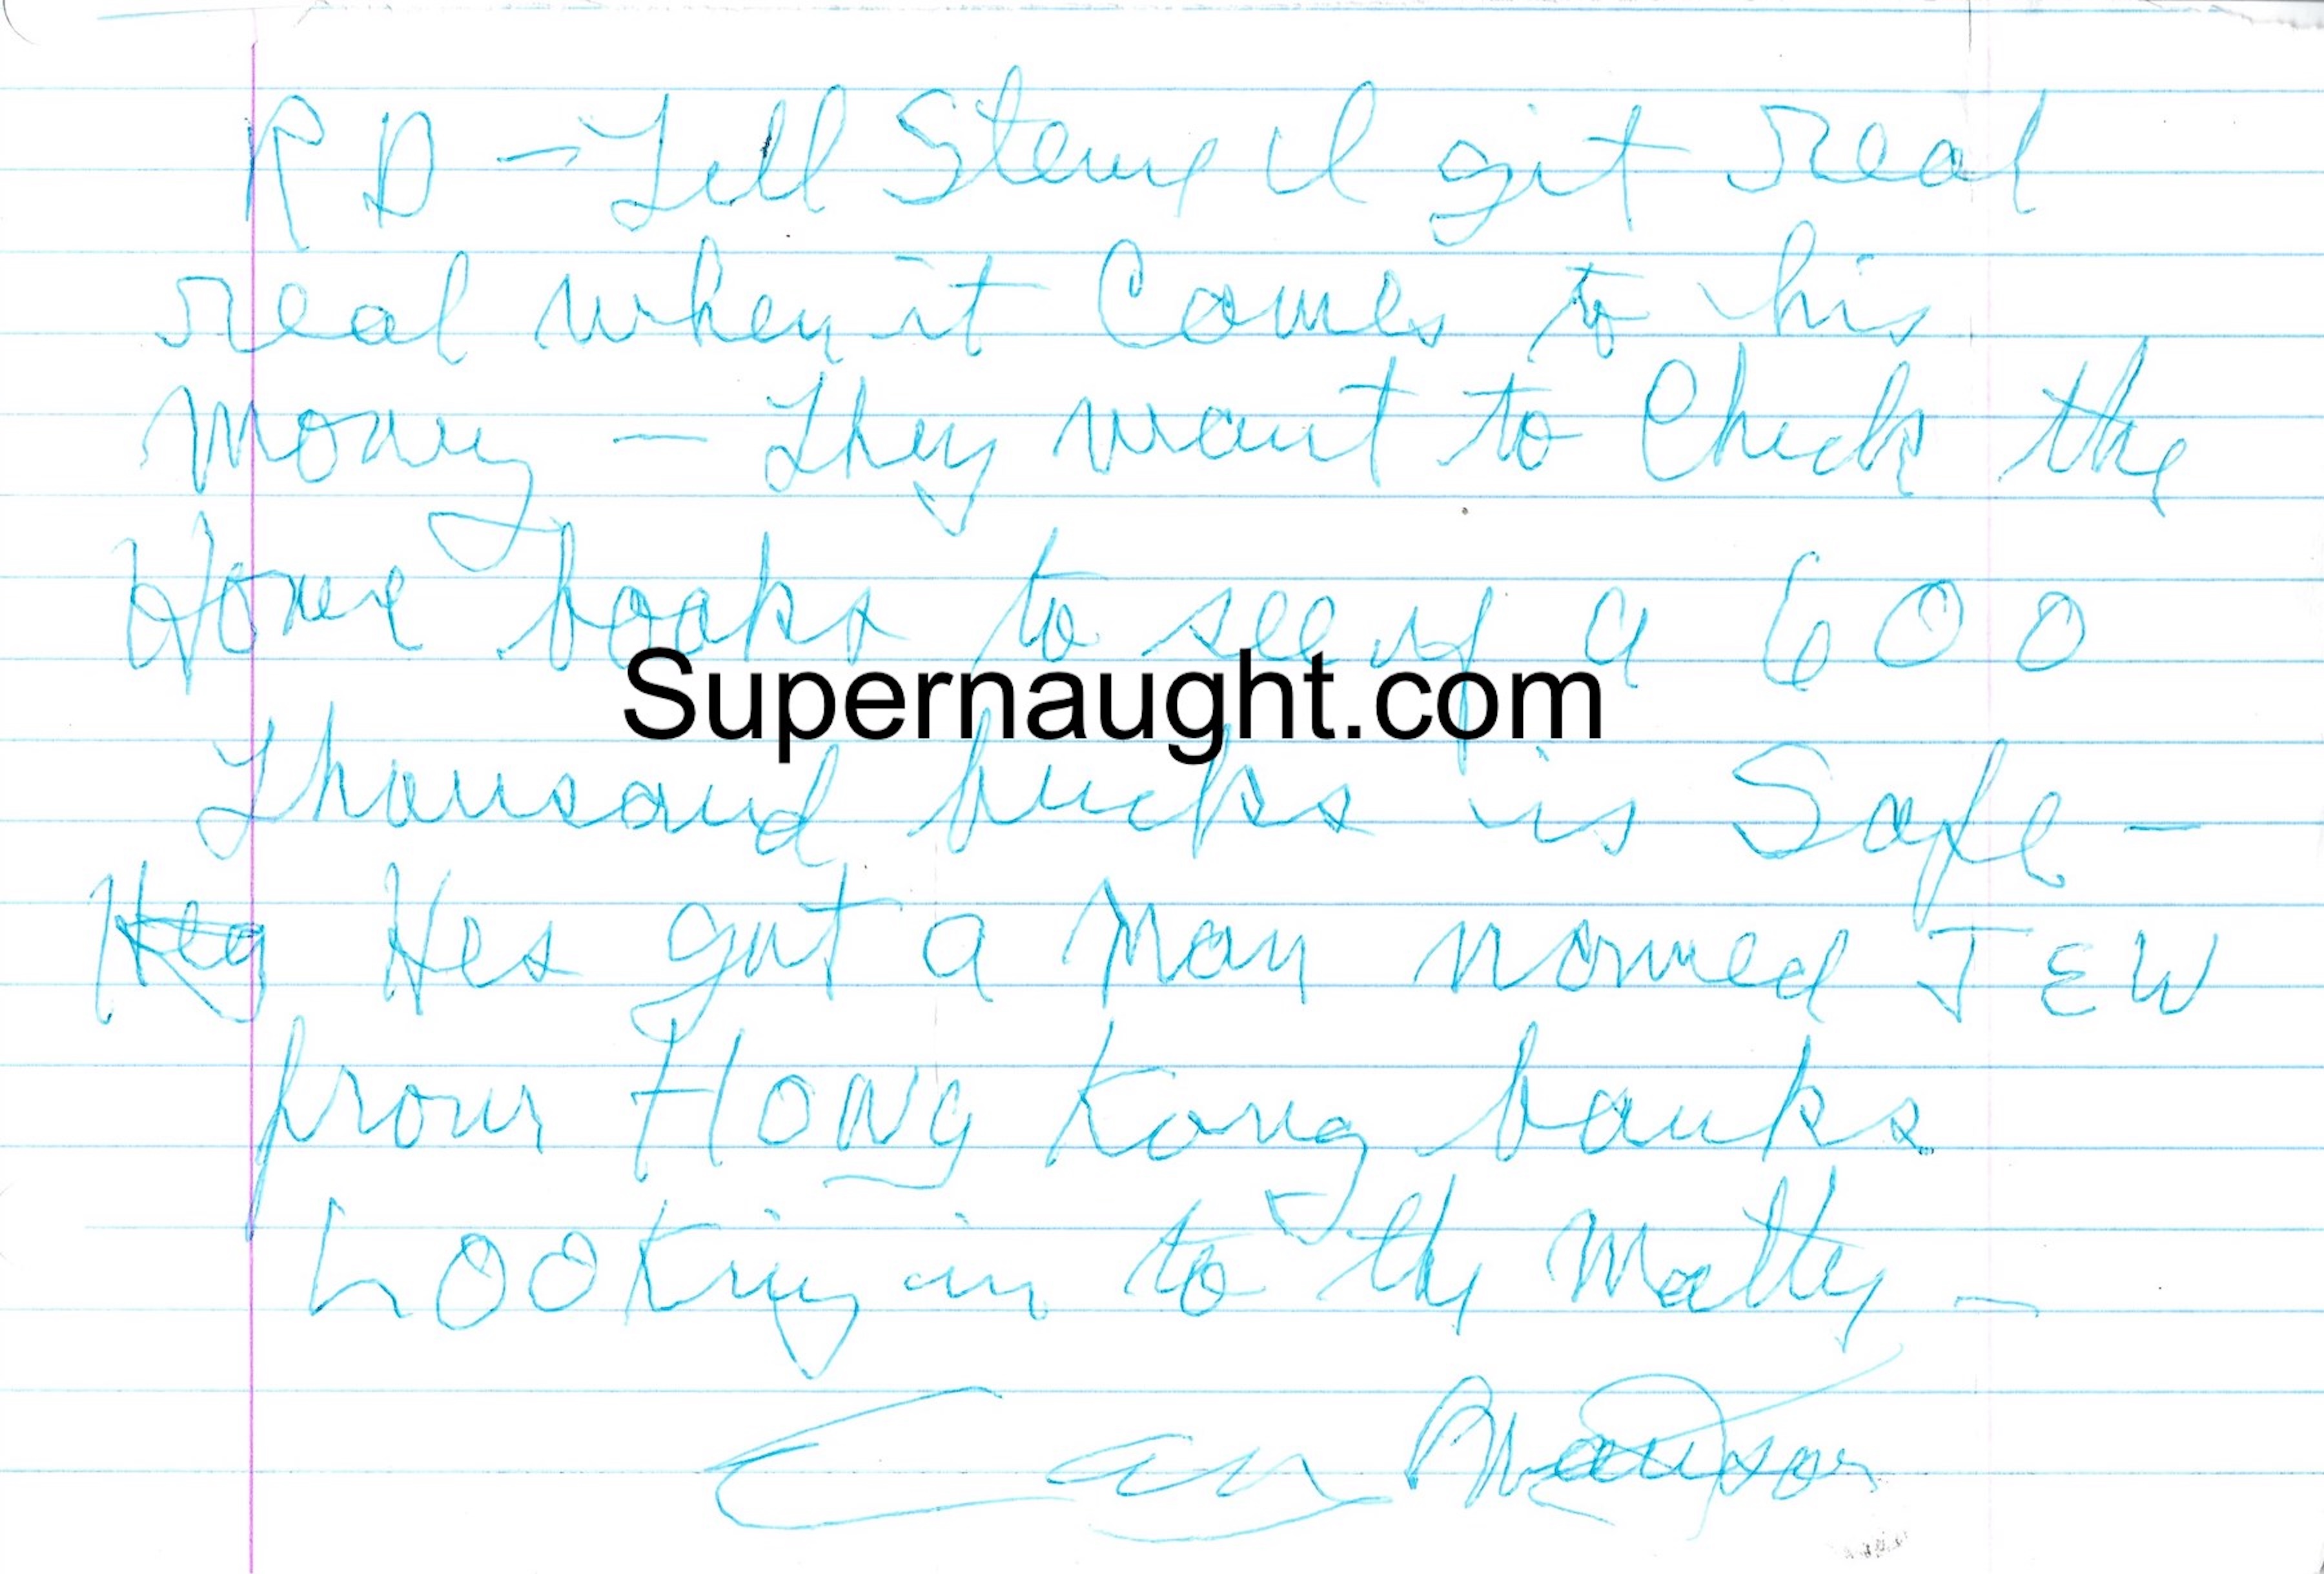 R D - Tell Steve I git real
real when it Comes to his
money - They want to Check the
Home books to see if a 600
Supernaught.com
Thousand bucks is Safe -
Hes got a Man nomed JEW
from HONg Kong banks
LOOKing in to the Matter -
Manson